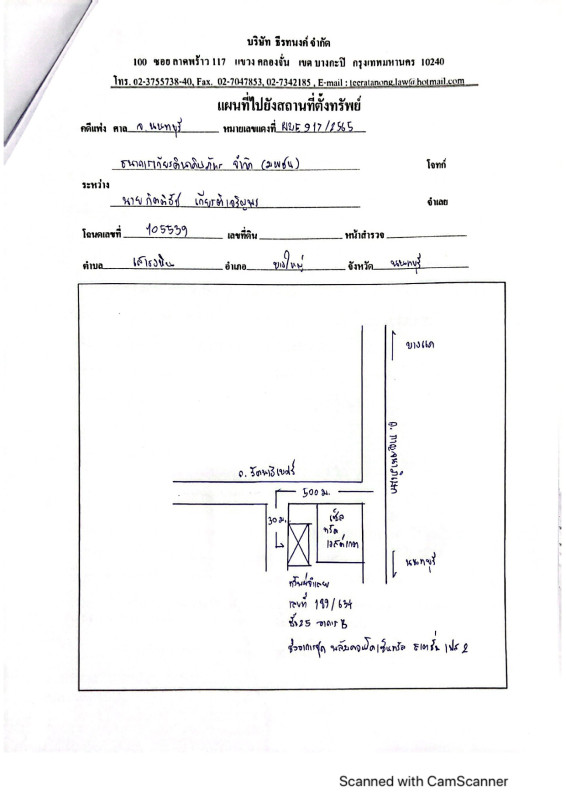 บริษัท ธีรทนงค์ จำกัด
100 ซอย ลาดพร้าว 117 แขวง คลองจั่น เขต บางกะปิ กรุงเทพมหานคร 10240
โทร. 02-3755738-40, Fax. 02-7047853, 02-7342185 , E-mail : teeratanong.law@hotmail.com
แผนที่ไปยังสถานที่ตั้งทรัพย์
คดีแพ่ง ศาล จ. นนทบุรี หมายเลขแดงที่ ผบE 917/2565
ธนาคารเกียรตินาคินภัทร จำกัด (มหาชน) โจทก์
ระหว่าง
นาย กิตติธัช เกียรติเจริญพร จำเลย
โฉนดเลขที่ 105539 เลขที่ดิน หน้าสำรวจ
ตำบล เสาธงหิน อำเภอ บางใหญ่ จังหวัด นนทบุรี
บางแค
ถ. กาญจนาภิเษก
ถ. รัตนาธิเบศร์
500 ม.
30 ม.
เซ็ล
ทรัล
เวสต์เกต
นนทบุรี
ทรัพย์จำเลย
เลขที่ 199/634
ชั้น 25 อาคาร B
ชื่ออาคารชุด พลัมคอนโด เซ็นทรัล สเตชั่น เฟส 2
Scanned with CamScanner